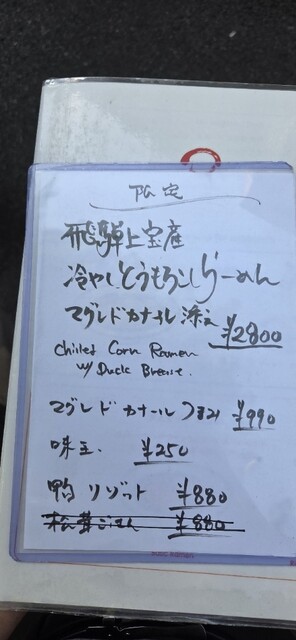 限定
飛騨上宝産
冷やしとうもろこしらーめん
マグレドカナール添え
¥2800
Chilled Corn Ramen
w/ Duck Breast.
マグレドカナール ¥990
味玉. ¥250
鴨リゾット ¥880
松茸ごはん ¥880